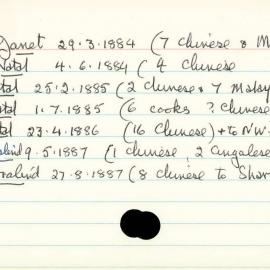 Janet 29.3.1884 (7 Chinese & M
Natal 4.6.1884 (4 Chinese
tal 25.2.1885 (2 Chinese & 7 Malay
tal 1.7.1885 (6 cooks ? Chinese
tal 23.4.1886 (16 Chinese) + to N.W.
alind 9.5.1887 (1 Chinese, 2 Cingalese
salind 27.8.1887 (8 Chinese to Shar